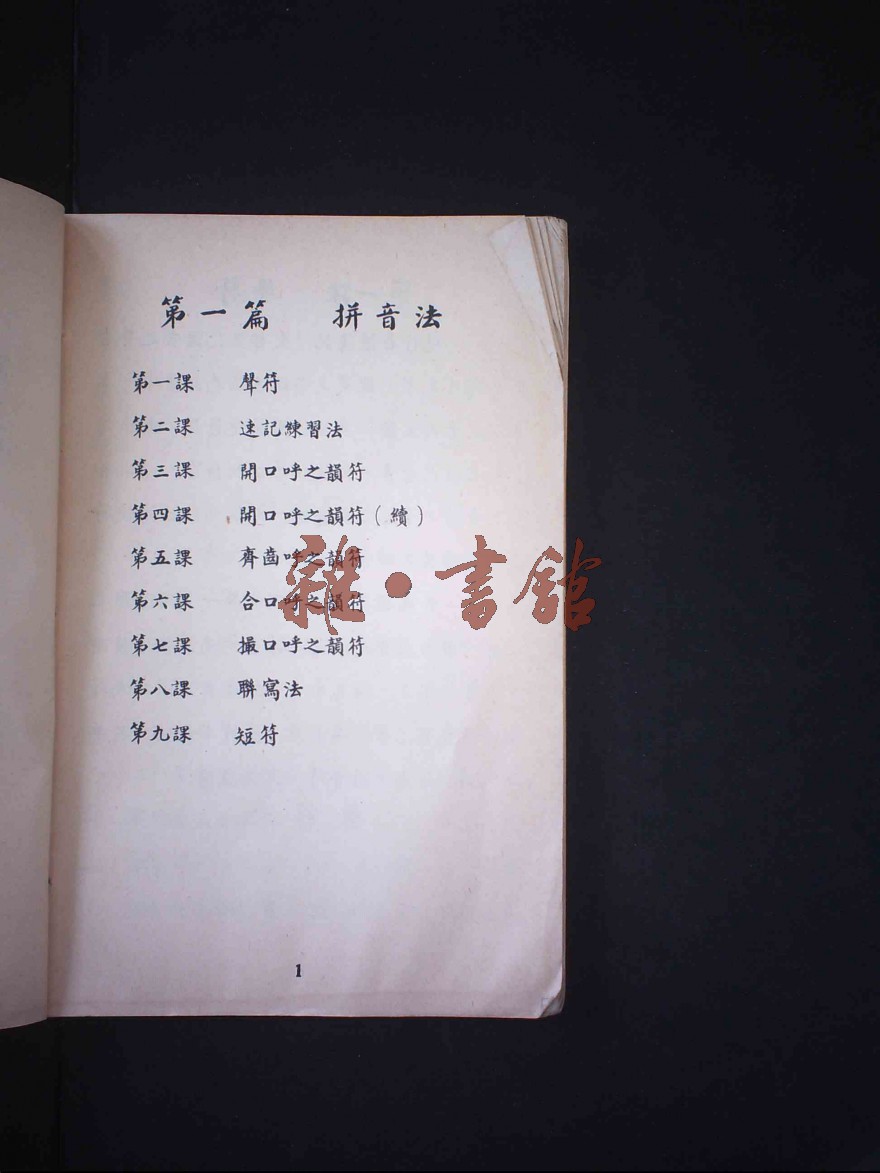 第一篇　拼音法
第一課　聲符
第二課　速記練習法
第三課　開口呼之韻符
第四課　開口呼之韻符（續）
第五課　齊齒呼之韻符
第六課　合口呼之韻符
第七課　撮口呼之韻符
第八課　聯寫法
第九課　短符
雜·書館
1